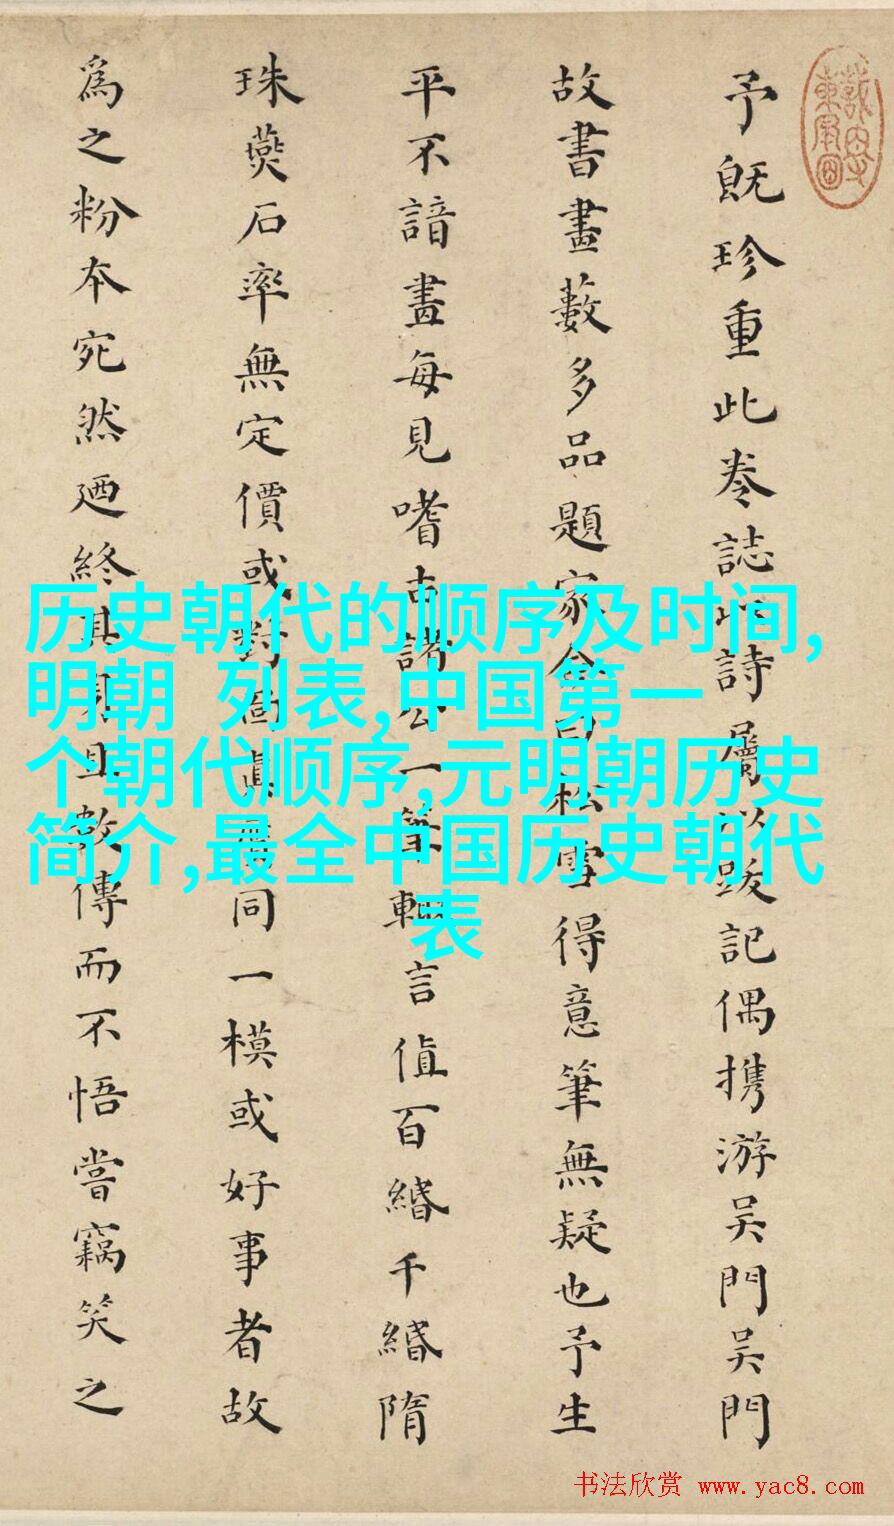 予旣珍重此卷誌以詩屬以跋記偶携游吳門吳門
故書畫藪多品題家僉曰松雪得意筆無疑也予生
平不諳畫每見嗜古諸公一筆輒言值百緡千緡隋
珠燕石率無定價或對啚真同一模或好事者故
為之粉本宛然迺終其身且數傳而不悟嘗竊笑之
历史朝代的顺序及时间,
明朝 列表,中国第一
个朝代顺序,元明朝历史
简介,最全中国历史朝代
表
书法欣赏 www.yac8.com